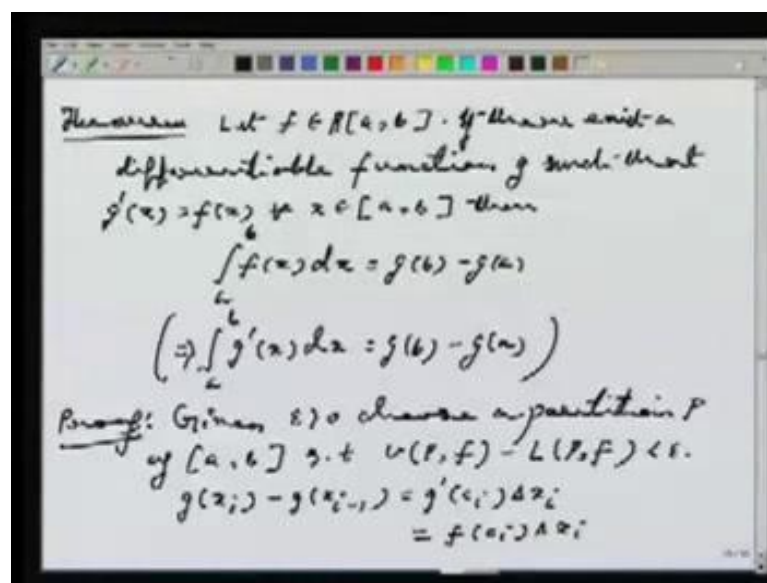 Theorem Let f ∈ R[a,b]. If there exist a
differentiable function g such that
g'(x) = f(x) ∀ x ∈ [a,b] then
∫_a^b f(x) dx = g(b) - g(a)
(⇒ ∫_a^b g'(x) dx = g(b) - g(a))
Proof: Given ε>0 choose a partition P
of [a,b] s.t U(P,f) - L(P,f) < ε.
g(x_i) - g(x_{i-1}) = g'(c_i) Δx_i
= f(c_i) Δx_i